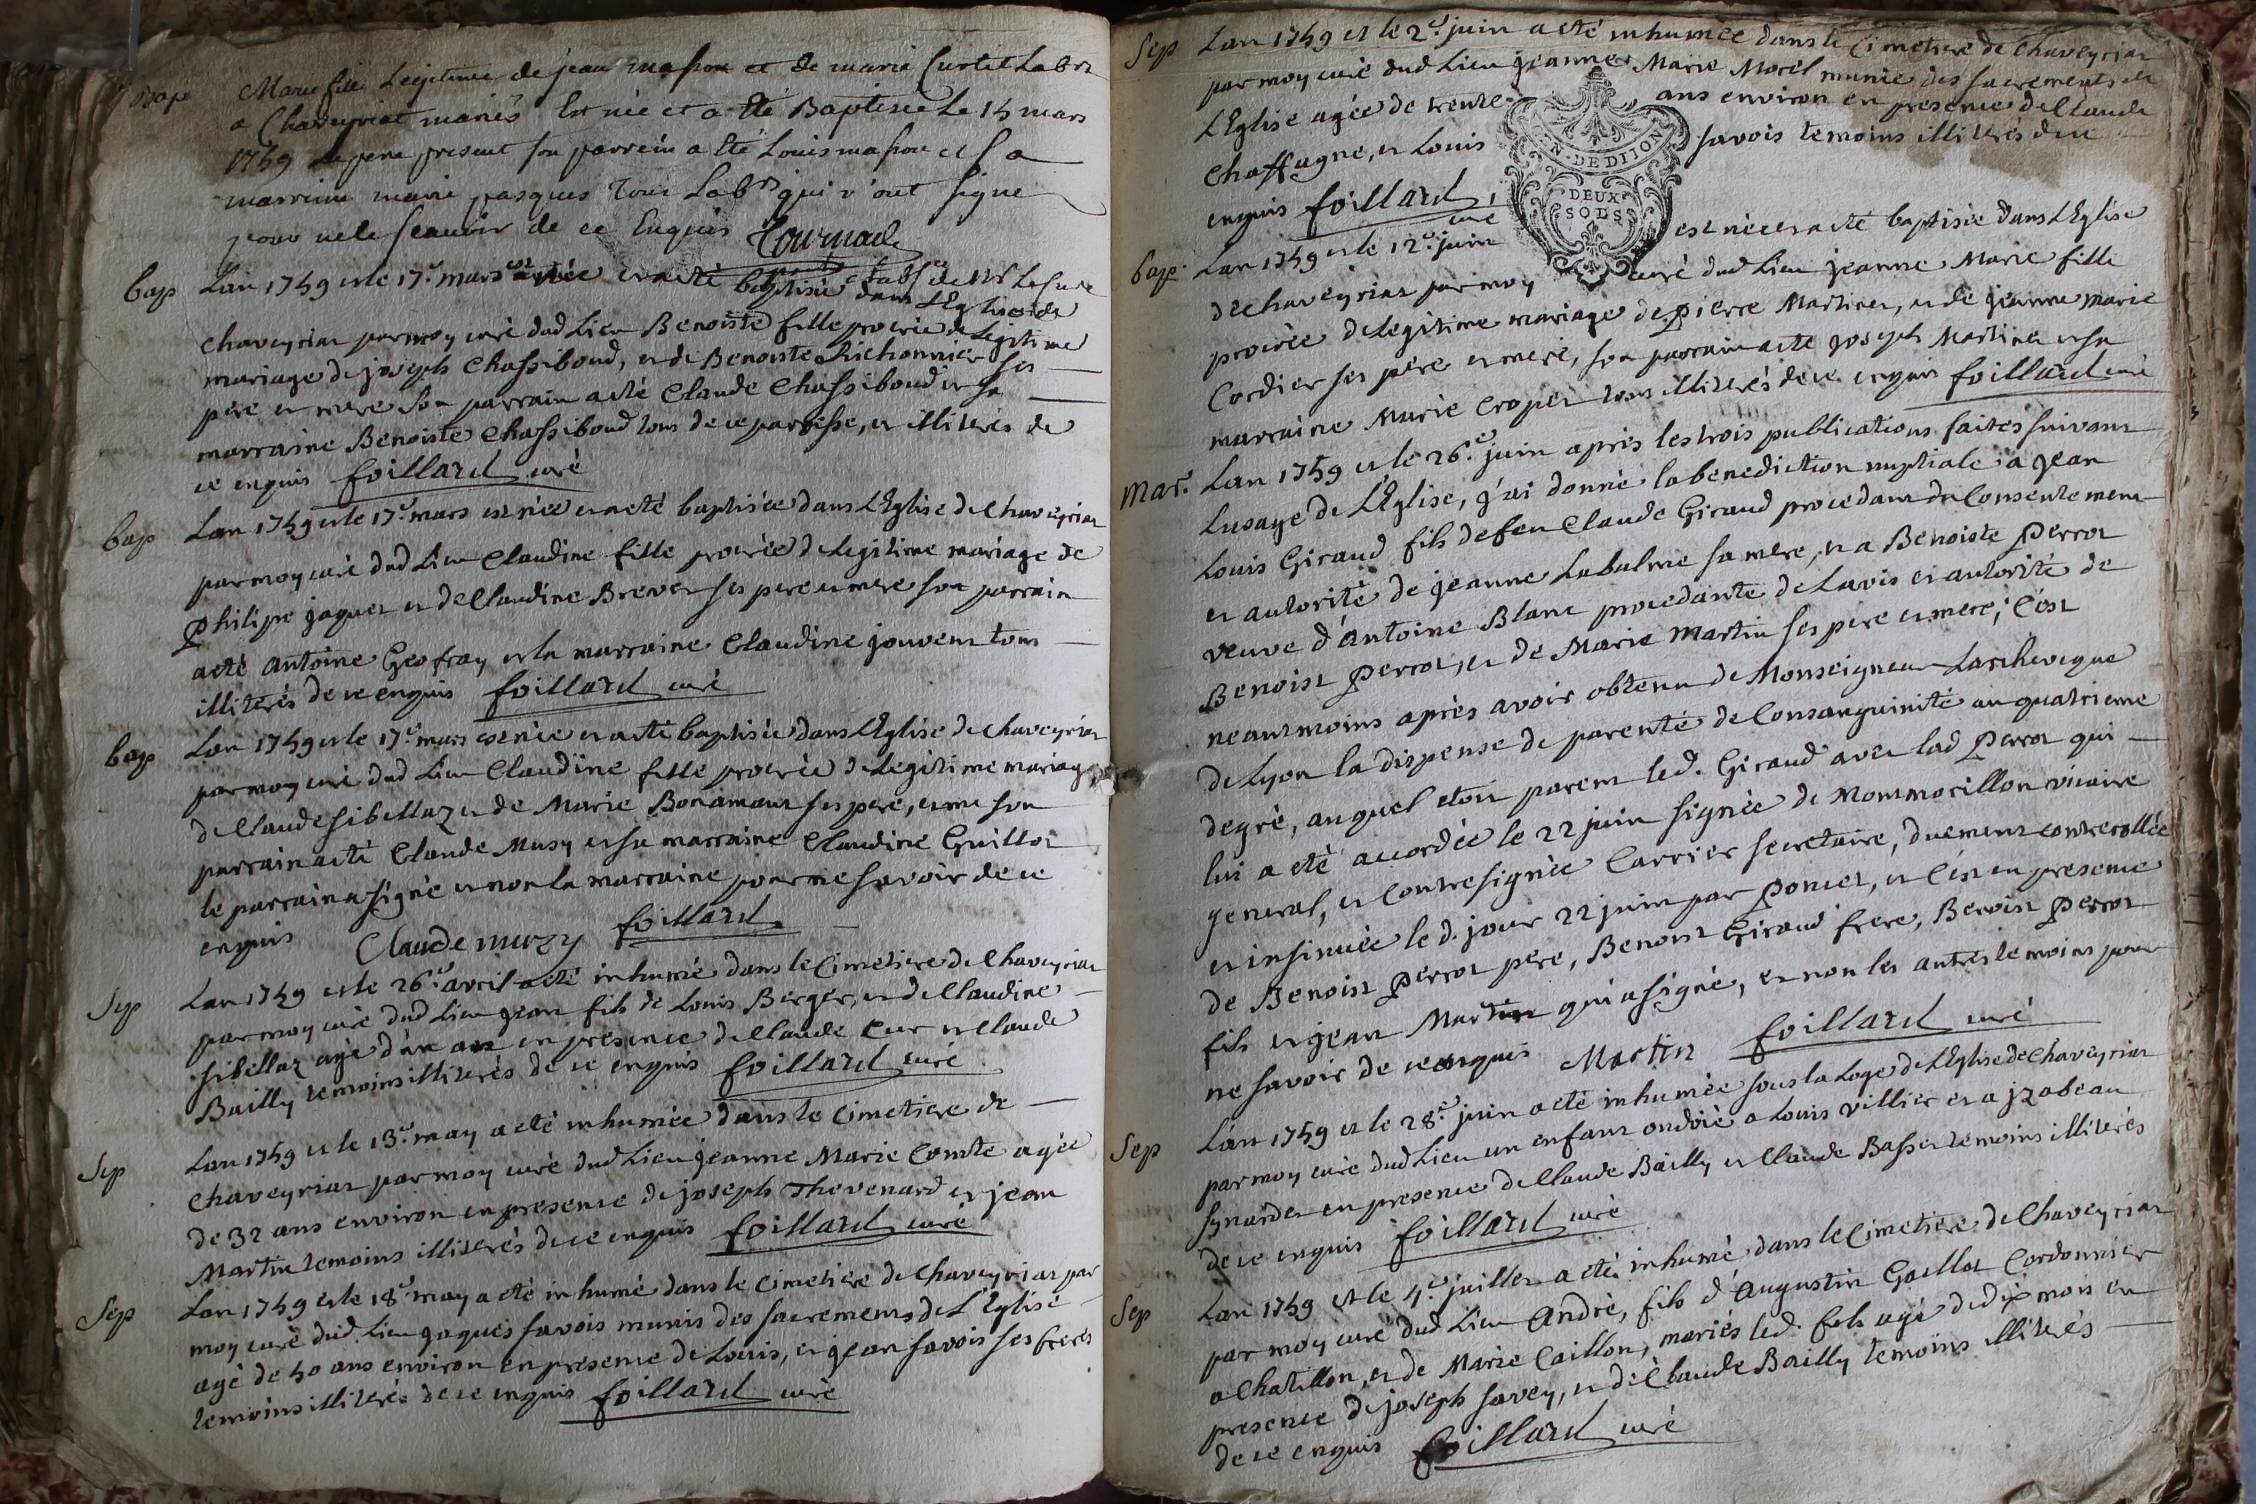 Bap Marie fille Legitime de jean mason et de marie Curtet Labrs
a Chaveyriat mariés Est née et a été Baptisée Le 15 mars
1759 Le pere present son parrein a été Louis mason et sa
marreine marie pasques tous Labrs qui n'ont signé
pour ne le scauoir de ce Enquis Tournade
bap Lan 1759 et le 17e. mars est née et a eté baptisée dans L'Eglise de
Chaveyriat par moy curé dud Lieu Benoiste fille procréé de Legitime
mariage de joseph Chassiboud, et de Benoiste Richonnier ses
pere et mere son parrain a eté Claude Chassiboud et sa
marraine Benoiste Chassiboud tous de ce paroisse, et illiterés de
ce enquis foillard curé
bap Lan 1759 et le 17e. mars est née et a eté baptisée dans L'Eglise de Chaveyriat
par moy curé dud Lieu Claudine fille procréé de Legitime mariage de
Philipe jaquet et de Claudine Brevet ses pere et mere son parrain
a eté Antoine Geofray et la marraine Claudine jouvent tous
illiterés de ce enquis foillard curé
bap Lan 1759 et le 17e. mars est née et a eté baptisée dans L'Eglise de Chaveyriat
par moy curé dud Lieu Claudine fille procréé de Legitime mariage
de Claude sibellaz et de Marie Bonamour ses pere, et me son
parrain a eté Claude Musy et sa marraine Claudine Guillot
le parrain a signé et non la marraine pour ne savoir de ce
enquis Claude muzy foillard
Sep Lan 1759 et le 26e. avril a eté inhumé dans le Cimetiere de Chaveyriat
par moy curé dud Lieu jean fils de Louis Berger, et de Claudine
sibellaz agé d'un an en presence de Claude Cur et Claude
Bailly temoins illiterés de ce enquis foillard curé
Sep Lan 1759 et le 13e. may a eté inhumée dans le Cimetiere de
Chaveyriat par moy curé dud Lieu jeanne Marie Comte agée
de 32 ans environ en presence de joseph Thevenard et jean
Martin temoins illiterés de ce enquis foillard curé
Sep Lan 1759 et le 18e. may a eté inhumé dans le Cimetiere de Chaveyriat par
moy curé dud. Lieu jaques savois munis des sacrements de L'Eglise
agé de 50 ans environ en presence de Louis, et jean savois ses freres
temoins illiterés de ce enquis foillard curé
Sep Lan 1759 et le 2e. juin a eté inhumée dans le Cimetiere de Chaveyriat
par moy curé dud Lieu jeanne Marie Morel munie des sacrements de
L'Eglise agée de trente ans environ en presence de Claude
Chaffagne, et Louis savois temoins illiterés de ce
enquis foillard curé
GEN. DE DIJON
DEUX
SOLS
bap. Lan 1759 et le 12e. juin est née et a eté baptisée dans L'Eglise
de Chaveyriat par moy curé dud Lieu jeanne Marie fille
procréé de Legitime mariage de pierre Martinet, et de jeanne marie
Cordier ses pere et mere, son parrain a eté joseph Martinet et sa
marraine Marie Cropet tous illiterés de ce enquis foillard curé
Mar. Lan 1759 et le 26e. juin après les trois publications faites suivant
Lusage de L'Eglise, j'ai donné la benediction nuptiale a jean
Louis Giraud fils de feu Claude Giraud procedant du Consentement
et autorité de jeanne Labalme sa mere, et a Benoiste Perrot
veuve d'Antoine Blanc procedante de Lavis et autorité de
Benoist Perrot, et de Marie Martin ses pere et mere; C'est
neantmoins après avoir obtenu de Monseigneur Larcheveque
de Lyon la dispense de parenté de Consanguinité au quatrieme
degré, auquel etoit parent led. Giraud avec lad Perrot qui
lui a eté accordée le 22 juin signée de Mommorillon vicaire
general, et Contresignée Carrier secretaire, duement controllée
et insinuée le d. jour 22 juin par Poncet, et C'est en presence
de Benoist Perrot pere, Benoist Giraud frere, Benoist Perrot
fils et jean Martin qui a signé, et non les autres temoins pour
ne savoir de ce enquis Martin foillard curé
Sep Lan 1759 et le 28e. juin a eté inhumée sous la Loge de L'Eglise de Chaveyriat
par moy curé dud Lieu un enfant ondoié a Louis villier et a jzabeau
synardet en presence de Claude Bailly et Claude Basset temoins illiterés
de ce enquis foillard curé
Sep Lan 1759 et le 4e. juillet a eté inhumé dans le Cimetiere de Chaveyriat
par moy curé dud Lieu André, fils d'Augustin Goillot Cordonnier
a Chatillon, et de Marie Caillon, mariés led. fils agé de dix mois en
presence de joseph savey, et de Claude Bailly temoins illiterés
de ce enquis foillard curé